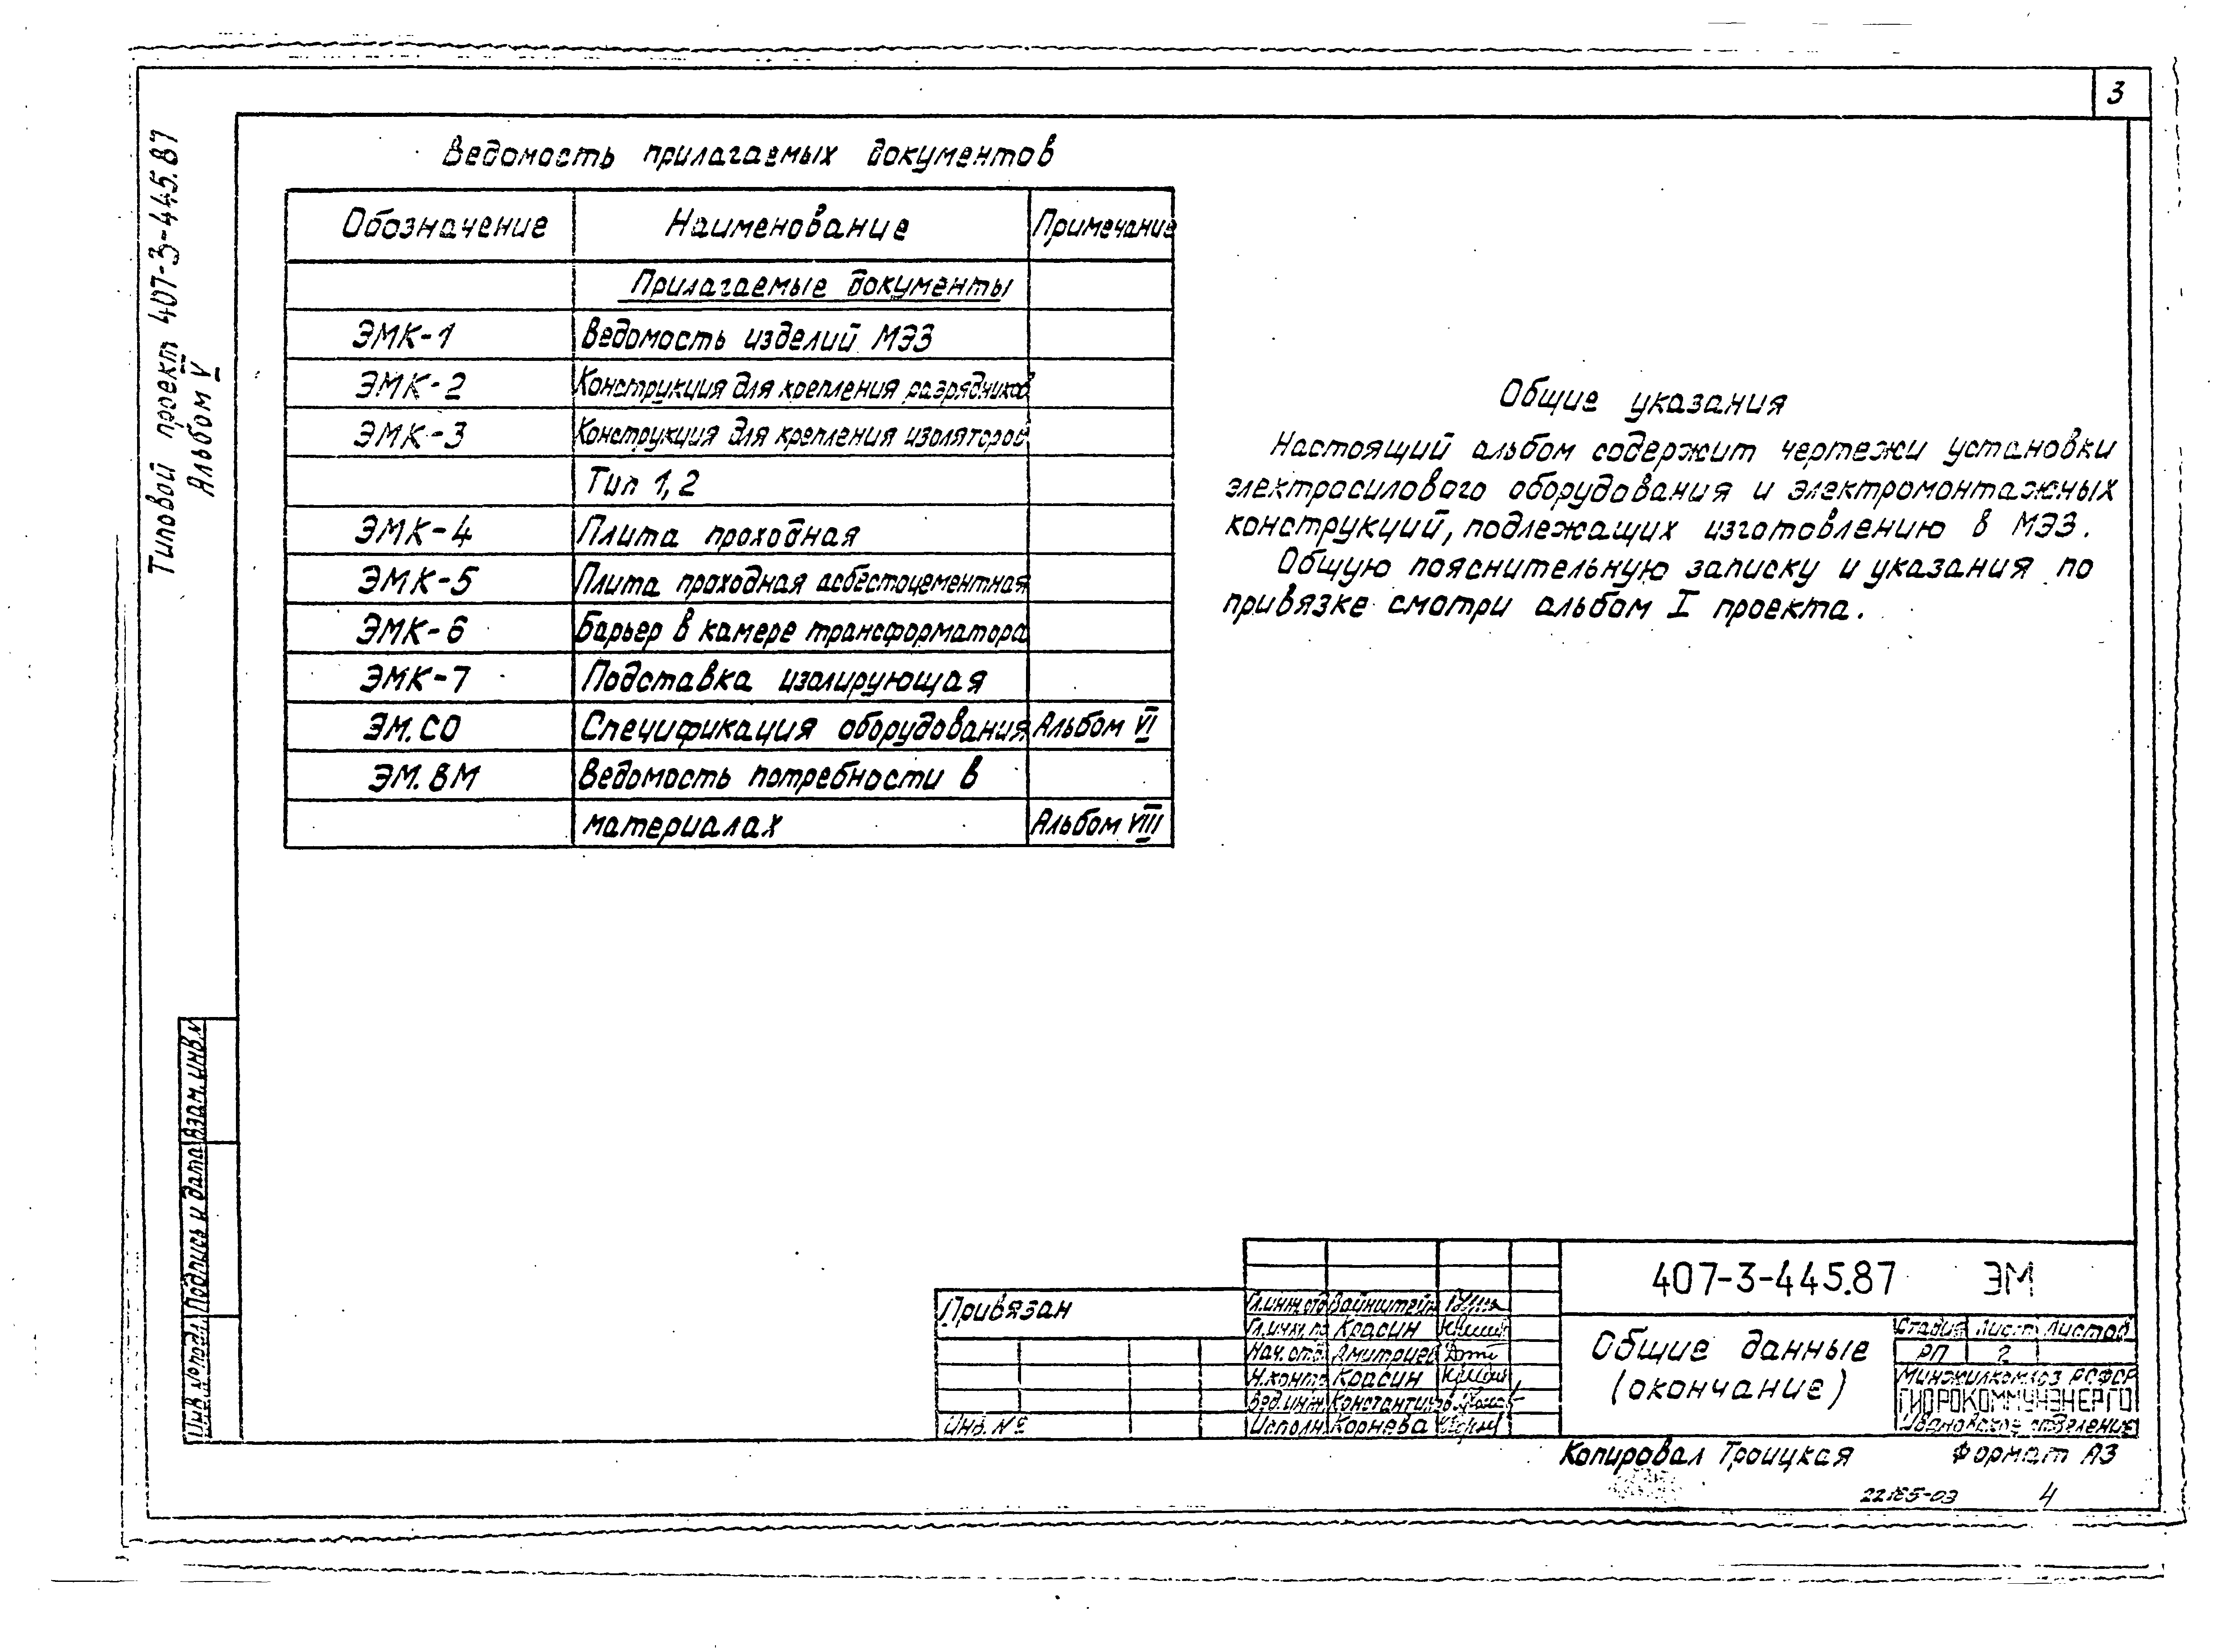 3
Типовой проект 407-3-445.87
Альбом V
Ведомость прилагаемых документов
Обозначение Наименование Примечание
Прилагаемые документы
ЭМК-1 Ведомость изделий МЭЗ
ЭМК-2 Конструкция для крепления разрядников
ЭМК-3 Конструкция для крепления изоляторов
Тип 1,2
ЭМК-4 Плита проходная
ЭМК-5 Плита проходная асбестоцементная
ЭМК-6 Барьер в камере трансформатора
ЭМК-7 Подставка изолирующая
ЭМ.СО Спецификация оборудования Альбом VI
ЭМ.ВМ Ведомость потребности в
материалах Альбом VIII
Общие указания
Настоящий альбом содержит чертежи установки
электросилового оборудования и электромонтажных
конструкций, подлежащих изготовлению в МЭЗ.
Общую пояснительную записку и указания по
привязке смотри альбом I проекта.
Взам. инв. №
Подпись и дата
Инв № подл.
Привязан
Инв. №
Гл.инж.отд Вайнштейн
Гл.инж.пр Красин
Нач. отд. Дмитриев
Н.контр Красин
Вед.инж. Константинов
Исполн Корнева
407-3-445.87 ЭМ
Общие данные
(окончание)
Стадия Лист Листов
РП 2
Минжилкомхоз РСФСР
ГИПРОКОММУНЭНЕРГО
Ивановское отделение
Копировал Троицкая Формат А3
22185-03 4